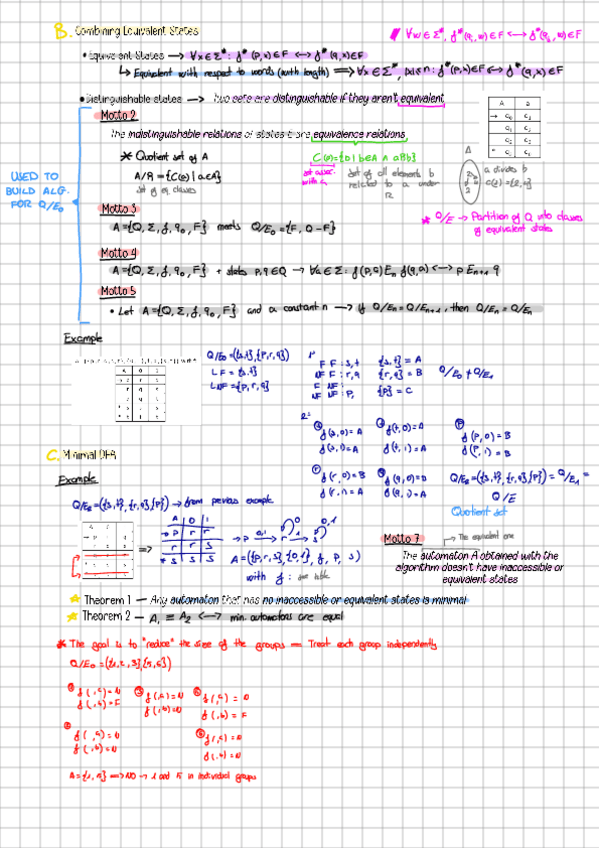 B. Combining Equivalent States
∀w∈Σ*, f*(q₁,w)∈F <—> f*(q₂,w)∈F
• Equivalent States —> ∀x∈Σ*: f*(p,x)∈F <—> f*(q,x)∈F
↳ Equivalent with respect to words (with length) ==> ∀x∈Σ*, |x|≤n: f*(p,x)∈F <—> f*(q,x)∈F
• Distinguishable states — Two sets are distinguishable if they aren't equivalent
Motto 2
The indistinguishable relations of states E are equivalence relations
* Quotient set of A
A/R = {C(a) | a∈A}
set of eq classes
C(a)={b | b∈A ∧ aRb}
set assoc. with a
set of all elements b related to a under R
a divides b
USED TO
BUILD ALG.
FOR Q/E₀
* Q/E —> Partition of Q into classes
of equivalent states
Motto 3
A={Q, Σ, f, q₀, F} meets Q/E₀={F, Q-F}
Motto 4
A={Q, Σ, f, q₀, F} + states p,q∈Q —> ∀a∈Σ: f(p,a) Eₙ f(q,a) <—> p Eₙ₊₁ q
Motto 5
• Let A={Q, Σ, f, q₀, F} and a constant n —> if Q/Eₙ = Q/Eₙ₊₁, then Q/Eₙ = Q/Eₙ
Example
Q/E₀=({s,t},{p,r,q})
LF={s,t}
LNF={p,r,q}
F F: s,t {s,t} = A
NF F: r,q {r,q} = B
F NF:
NF NF: p, {p} = C
Q/E₀ ≠ Q/E₁
f(s,0)=A
f(s,1)=A
f(t,0)=A
f(t,1)=A
f(p,0)=B
f(p,1)=B
f(r,0)=B
f(r,1)=A
f(q,0)=B
f(q,1)=A
Q/E₂=({s,t},{r,q},{p}) = Q/E₁ =
Q/E
Quotient set
C. Minimal DFA
Example
Q/E₂=({s,t},{r,q},{p}) —> from previous example
==>
A 0 1
->p r r
r r s
* s s s
A=({p,r,s},{0,1}, f, p, s)
with f: see table
Motto 7
The equivalent one
The automaton A obtained with the
algorithm doesn't have inaccessible or
equivalent states
Theorem 1 — Any automaton that has no inaccessible or equivalent states is minimal
Theorem 2 — A₁ ≡ A₂ <—> min. automatons are equal
* The goal is to "reduce" the size of the groups — Treat each group independently
Q/E₀=({1,2,3},{5,6})
f( ,a)=N
f( ,b)=F
f( ,a)=N
f( ,b)=N
f( ,a)=N
f( ,b)=F
f( ,a)=N
f( ,b)=N
f( ,a)=N
f( ,b)=N
A={1,5} ==> NO —> 1 and 5 in individual groups